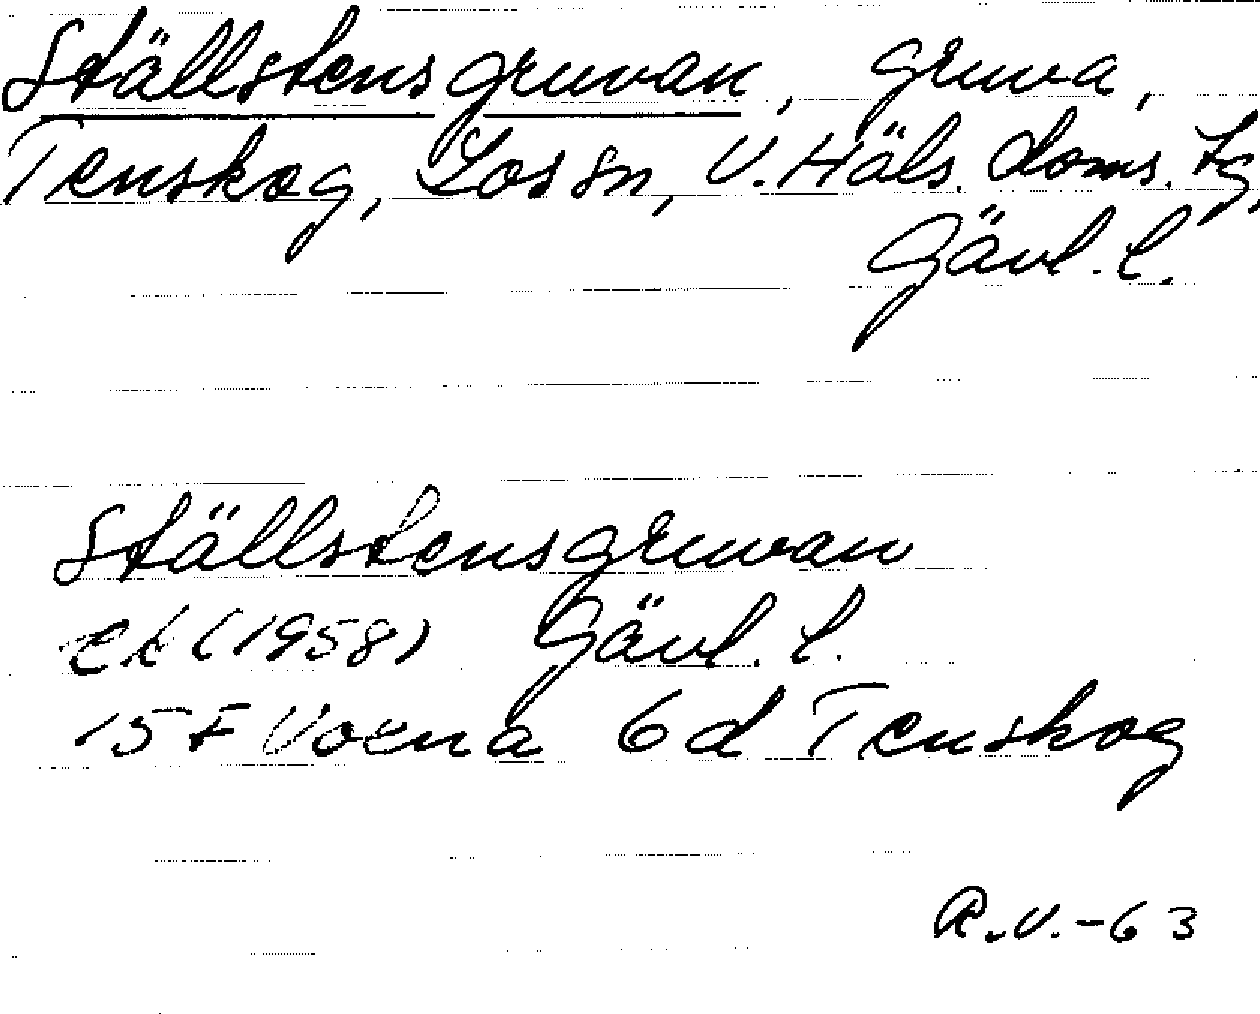 Ställstensgruvan, gruva,
Tenskog, Los sn, V. Häls. doms. tg,
Gävl. l.
Ställstensgruvan
ek (1958) Gävl. l.
15 F Voxna 6d Tenskog
R.V.-63